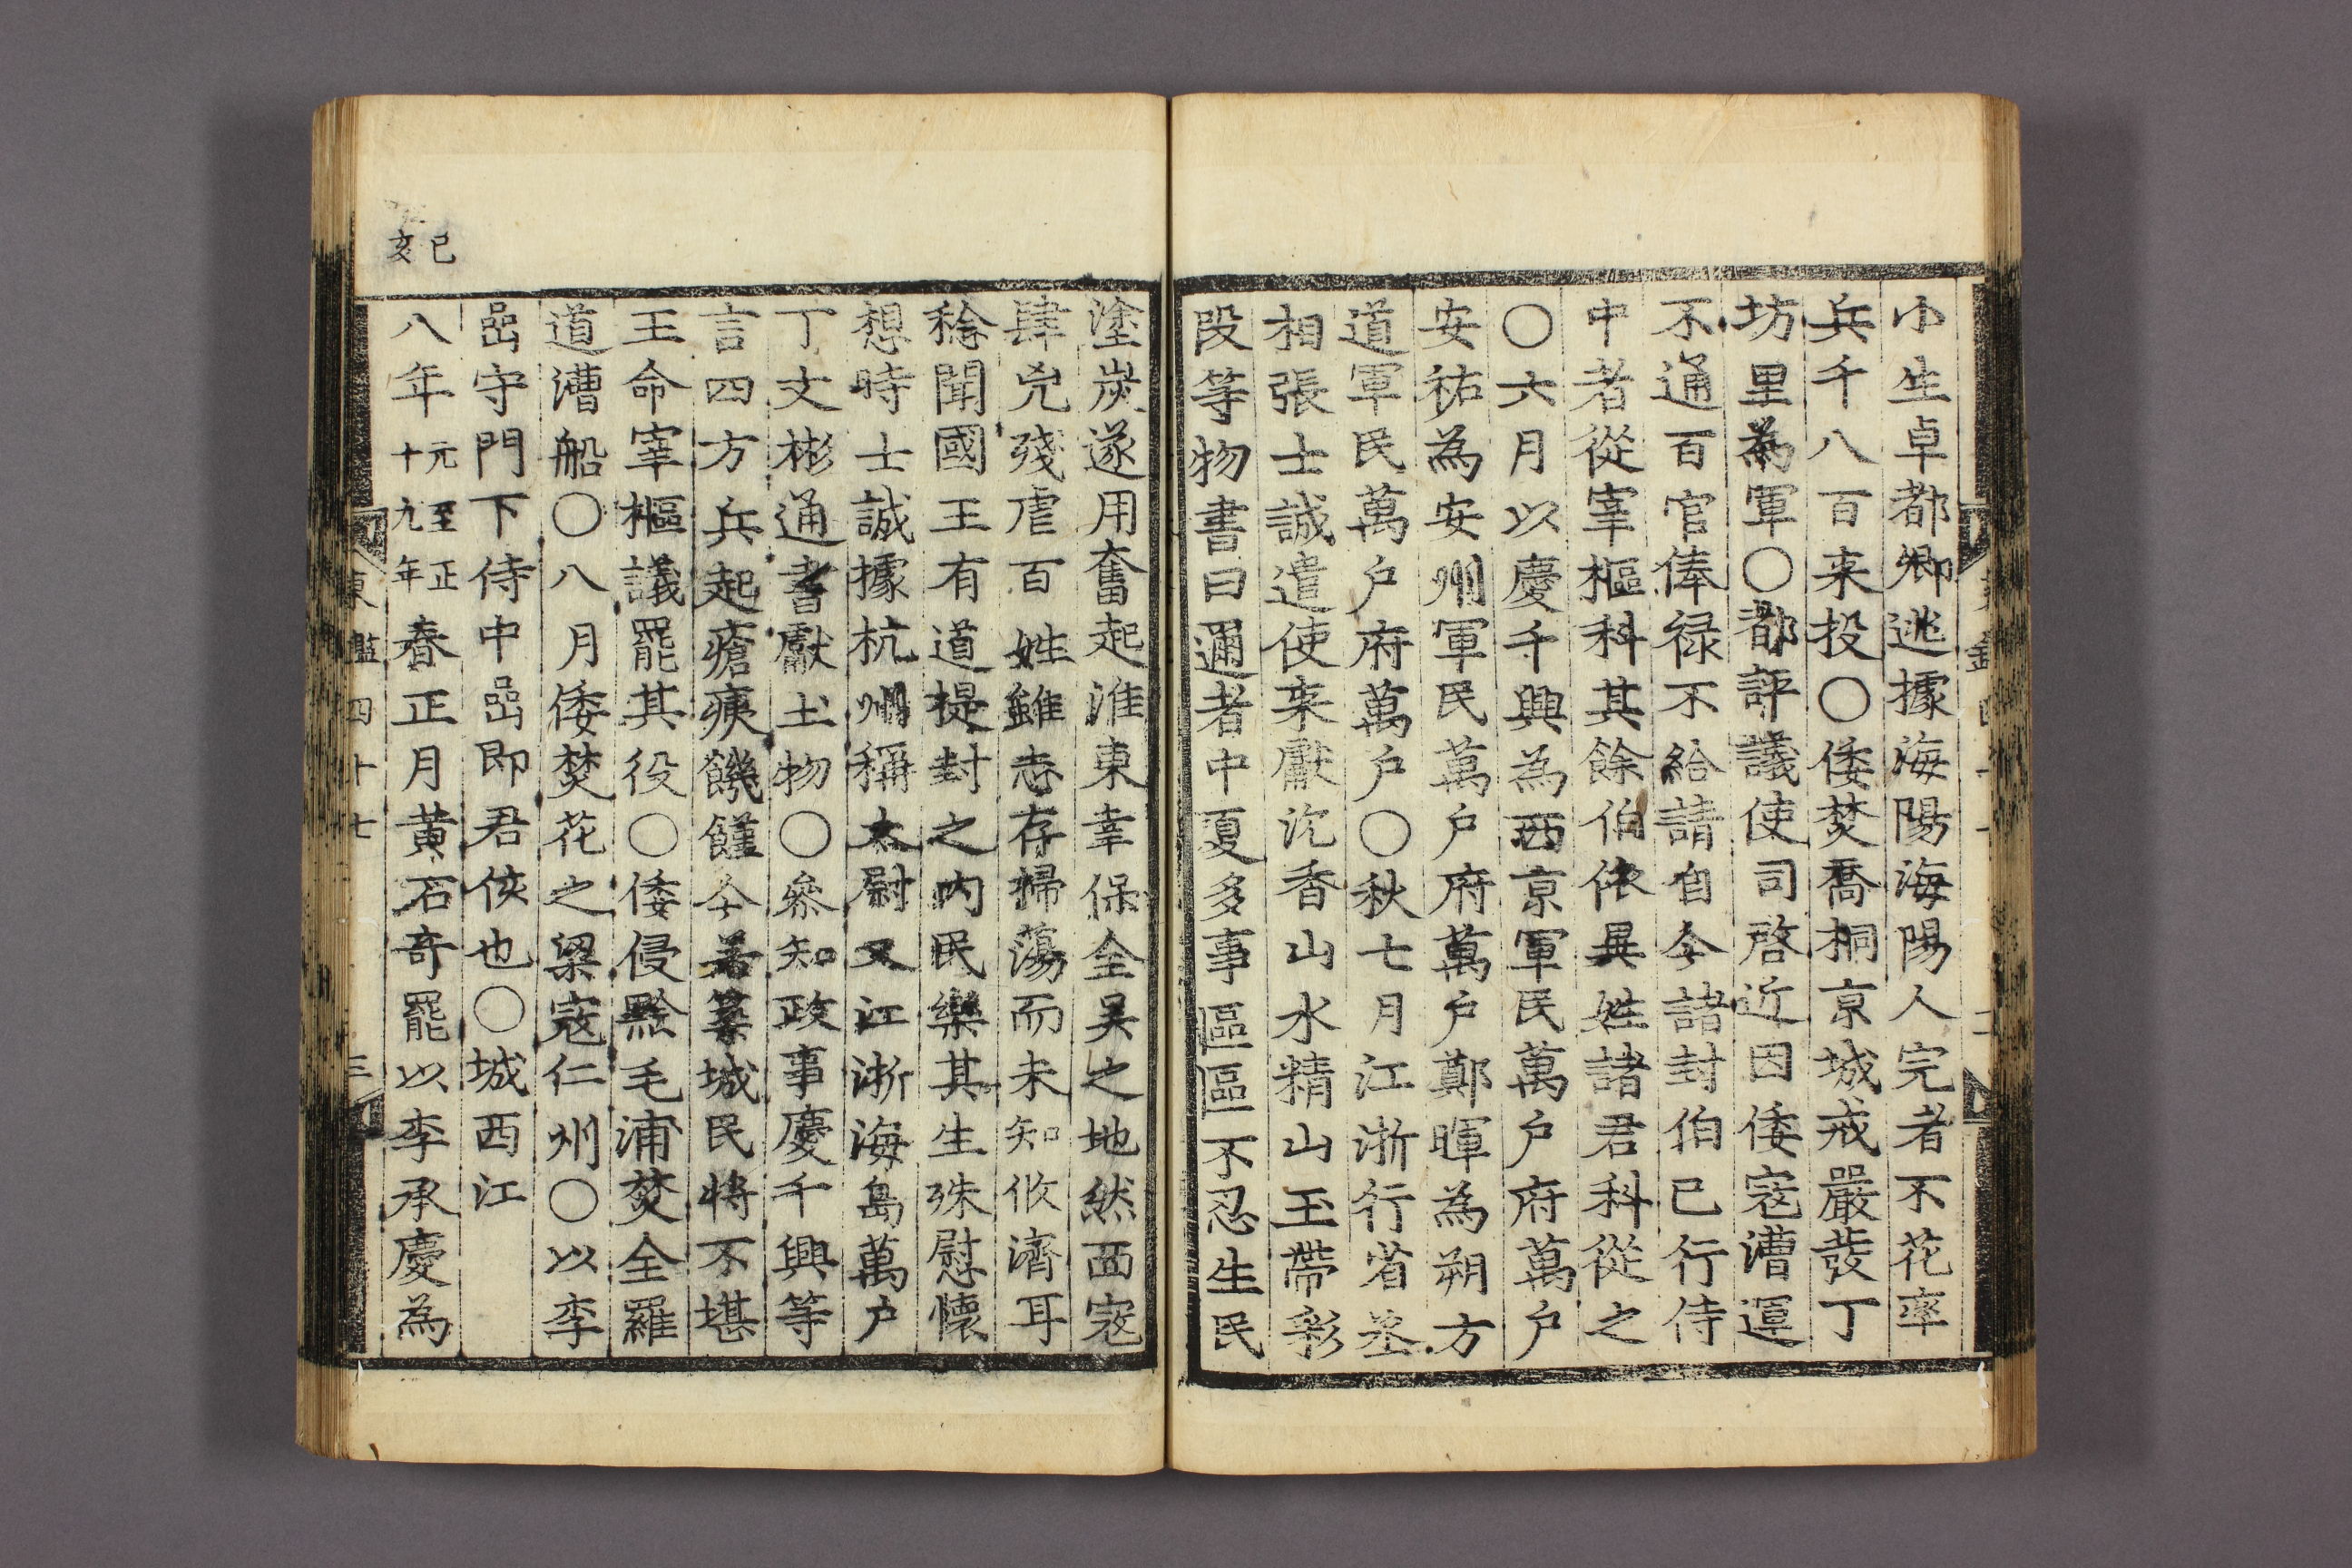 小生卓都卿逃據海陽海陽人完者不花率
兵千八百来投○倭焚喬桐京城戒嚴發丁
坊里為軍○都評議使司啓近因倭寇漕運
不通百官俸祿不給請自今諸封伯已行侍
中者從宰樞科其餘伯依異姓諸君科從之
○六月以慶千興為西京軍民萬户府萬户
安祐為安州軍民萬户府萬户鄭暉為朔方
道軍民萬户府萬户○秋七月江浙行省丞
相張士誠遣使来獻沉香山水精山玉帶彩
段等物書曰邇者中夏多事區區不忍生民
塗炭遂用奮起淮東幸保全吳之地然西寇
肆兇殘虐百姓雖志存掃蕩而未知攸濟耳
稔聞國王有道提封之內民樂其生殊慰懷
想時士誠據杭州稱太尉又江浙海島萬户
丁文彬通書獻土物○叅知政事慶千興等
言四方兵起瘡痍饑饉今若築城民將不堪
王命宰樞議罷其役○倭侵黔毛浦焚全羅
道漕船○八月倭焚花之梁寇仁州○以李
嵒守門下侍中嵒即君侅也○城西江
己亥
八年元至正十九年春正月黄石奇罷以李承慶為
東鑑四十七 三